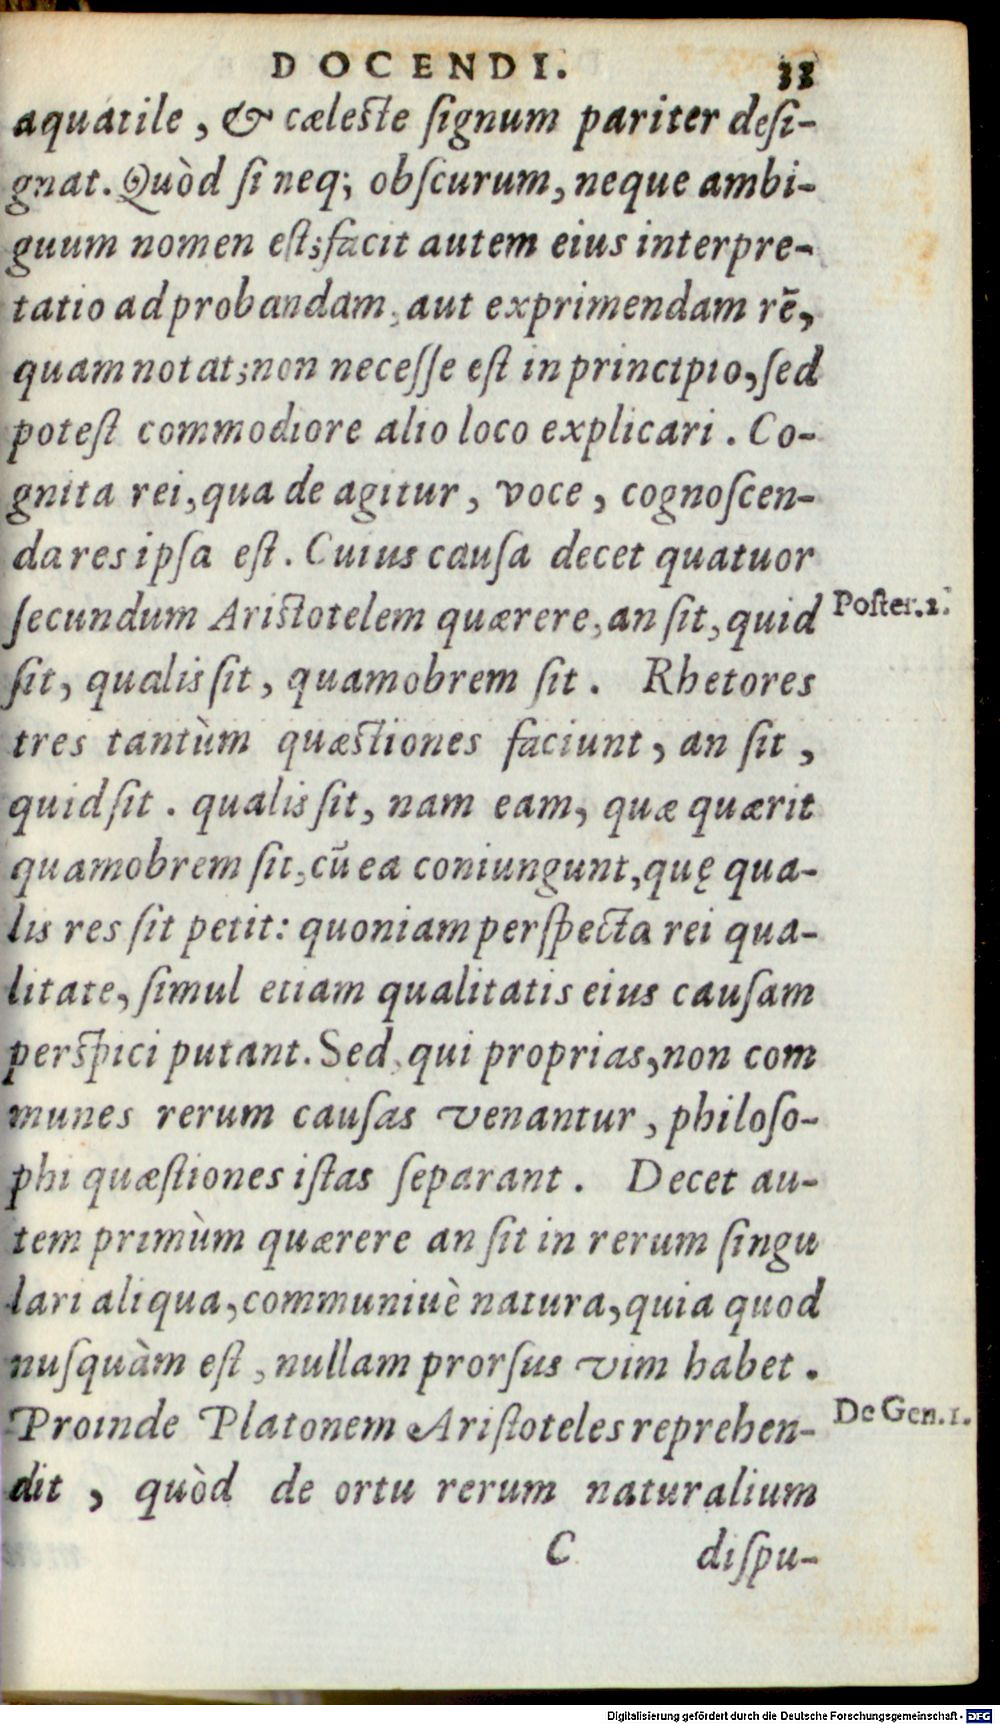 DOCENDI. 33
aquatile, & cæleste ſignum pariter deſi-
gnat. Quòd ſi neq; obſcurum, neque ambi-
guum nomen eſt; facit autem eius interpre-
tatio ad probandam, aut exprimendam rē,
quam notat; non neceſſe eſt in principio, ſed
poteſt commodiore alio loco explicari. Co-
gnita rei, qua de agitur, voce, cognoſcen-
da res ipſa eſt. Cuius cauſa decet quatuor
ſecundum Aristotelem quærere, an ſit, quid Poſter. 2.
ſit, qualis ſit, quamobrem ſit. Rhetores
tres tantùm quæstiones faciunt, an ſit,
quid ſit. qualis ſit, nam eam, quæ quærit
quamobrem ſit, cū ea coniungunt, quę qua-
lis res ſit petit: quoniam perſpecta rei qua-
litate, ſimul etiam qualitatis eius cauſam
perspici putant. Sed, qui proprias, non com
munes rerum cauſas venantur, philoſo-
phi quæſtiones iſtas ſeparant. Decet au-
tem primùm quærere an ſit in rerum ſingu
lari aliqua, communiuè natura, quia quod
nuſquàm eſt, nullam prorſus vim habet.
Proinde Platonem Ariſtoteles reprehen- De Gen. 1.
dit, quòd de ortu rerum naturalium
C diſpu-
Digitalisierung gefördert durch die Deutsche Forschungsgemeinschaft - DFG